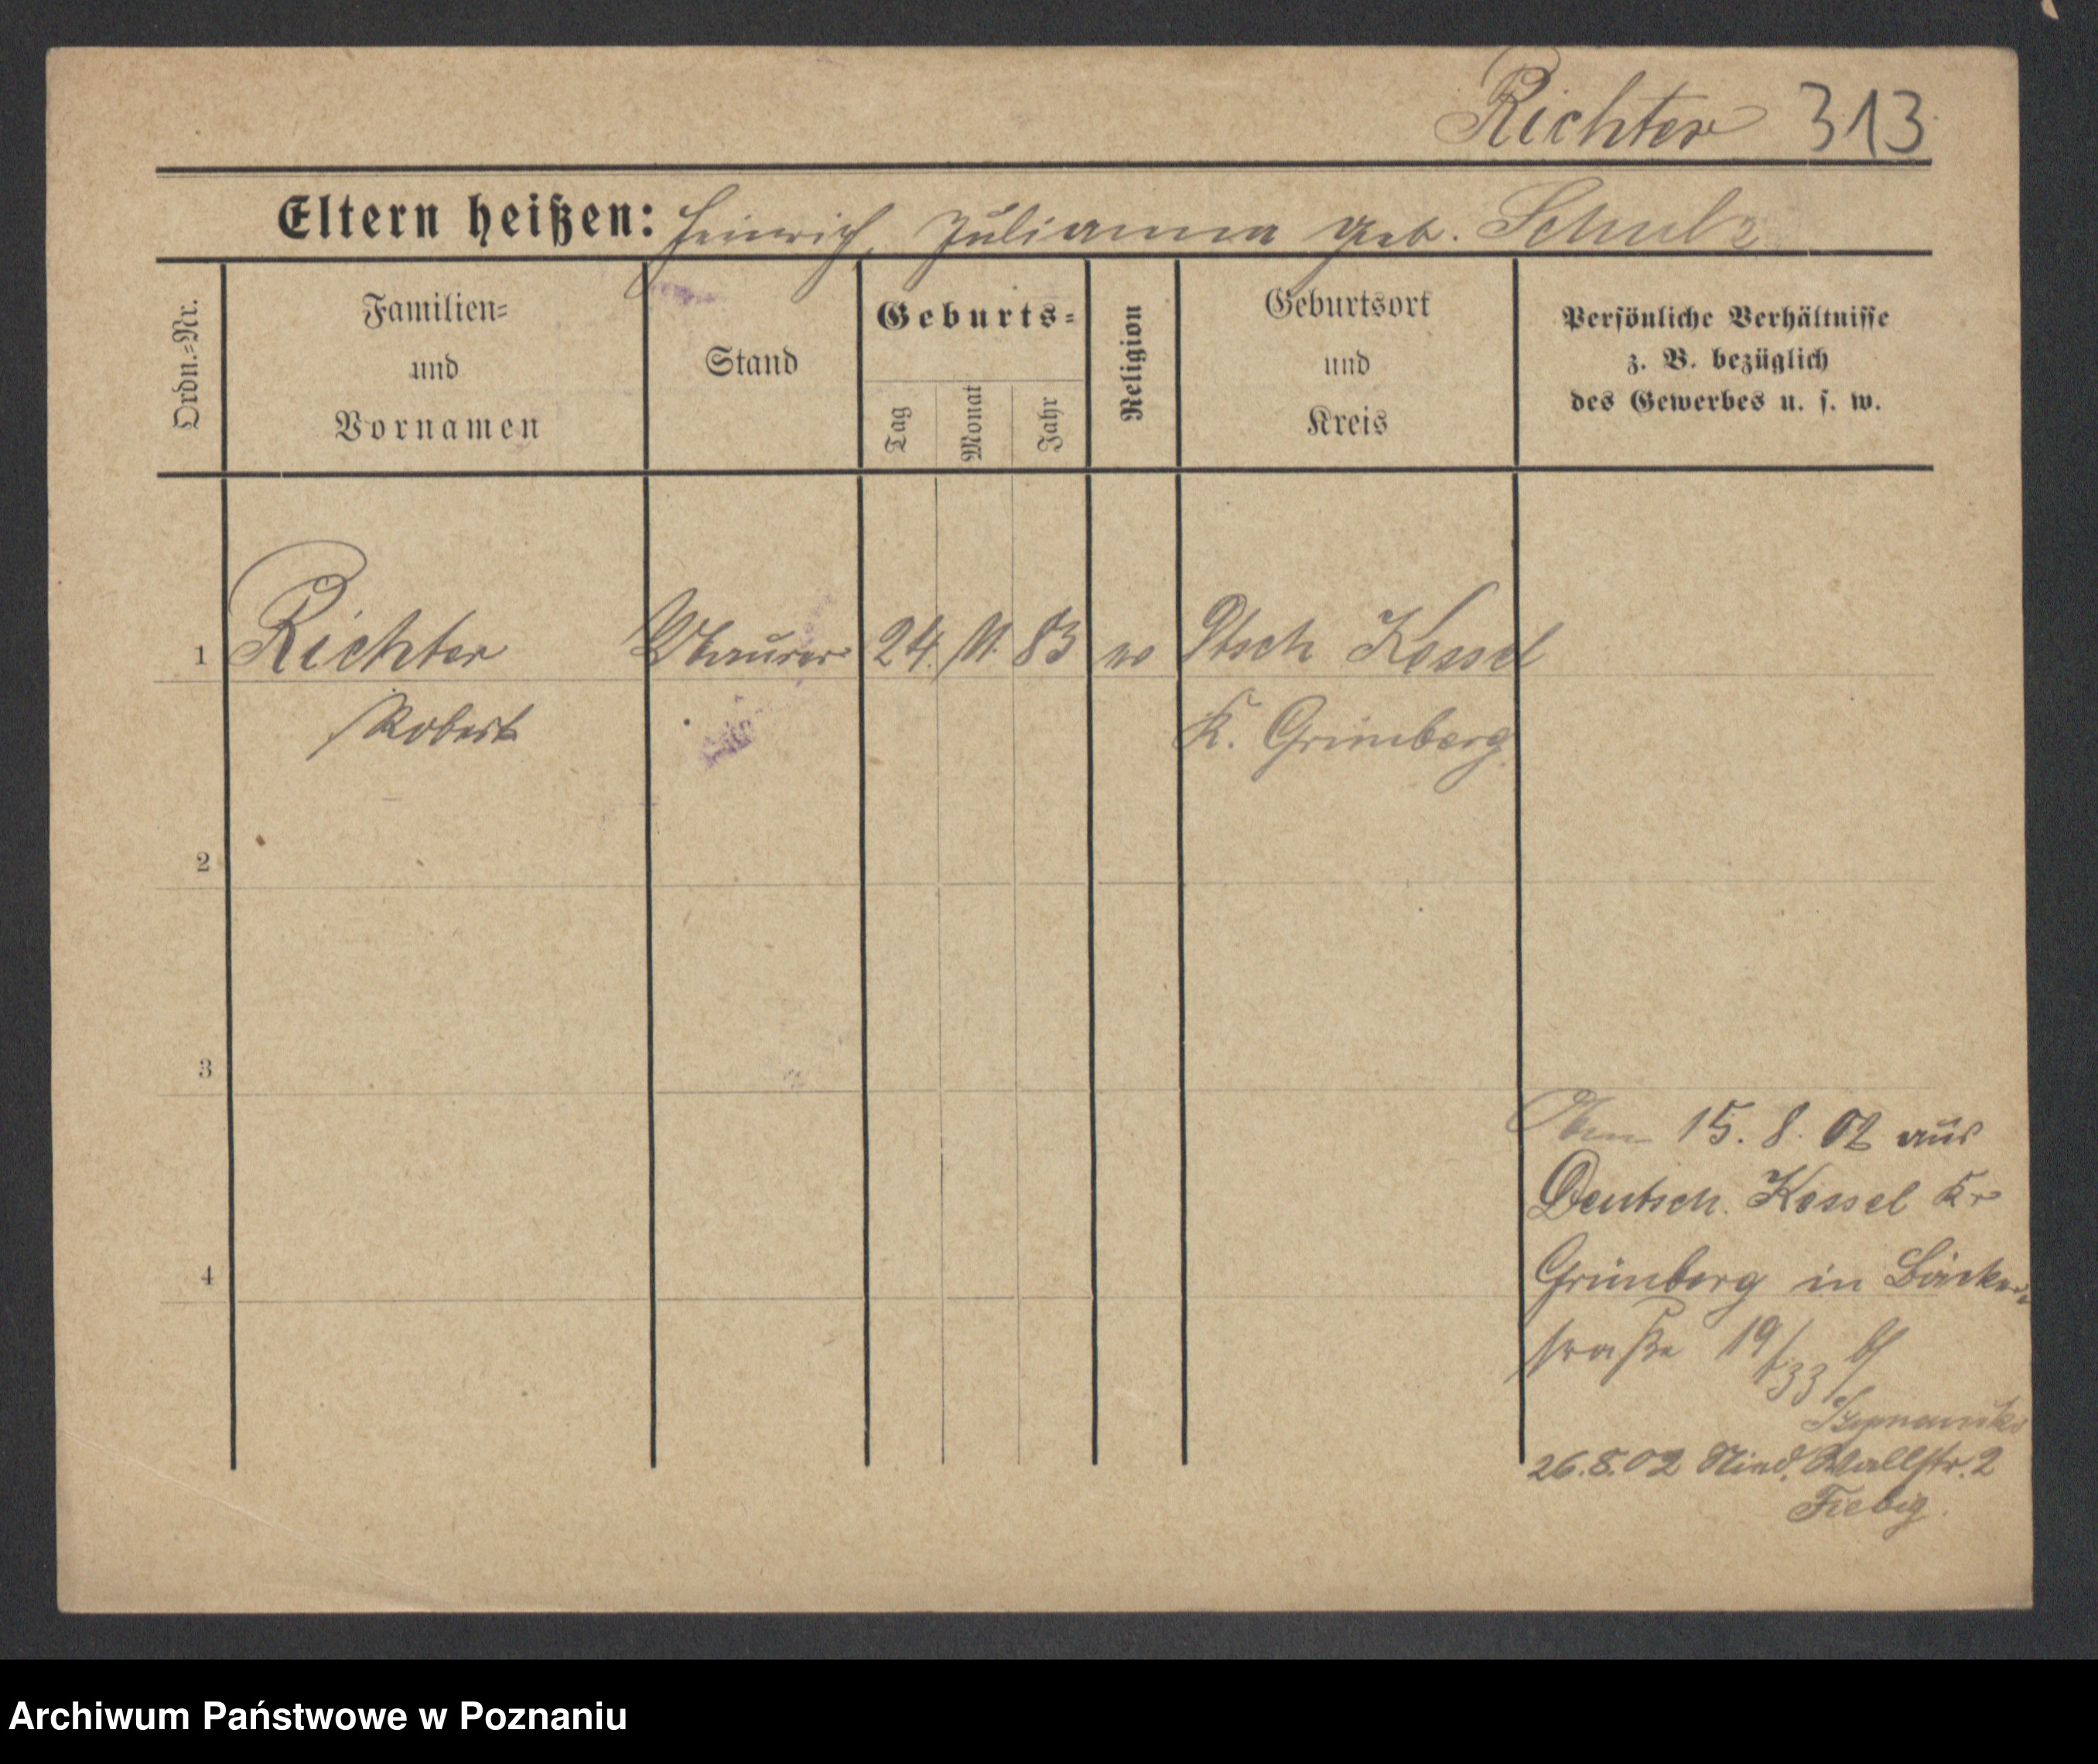 Richter 313
Eltern heißen: Heinrich, Julianna geb. Schulz
Ordn.=Nr.
Familien=
und
Vornamen
Stand
Geburts=
Tag
Monat
Jahr
Religion
Geburtsort
und
Kreis
Persönliche Verhältnisse
z. B. bezüglich
des Gewerbes u. s. w.
1 Richter Maurer 24. 11. 83 Dtsch Kessel
Robert K. Grünberg
2
3
15. 8. 02 aus
Deutsch. Kessel Kr
Grünberg in Bäcker=
straße 19/33 b/
26.8.02 Nied. Wallstr. 2
Fiebig.
4
Archiwum Państwowe w Poznaniu